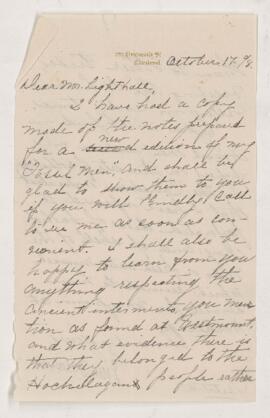 University St
Montreal
October 17. 98.
Dear Mr. Lighthall,
I have had a copy
made of the notes prepared
new
for a edition of my
"Fossil Men", and shall be
glad to show them to you
if you will kindly call
to see me as soon as con-
venient. I shall also be
happy to learn from you
anything respecting the
ancient interments you men-
tion as found at Westmount,
and what evidence there is
that they belonged to the
Hochelagan people rather